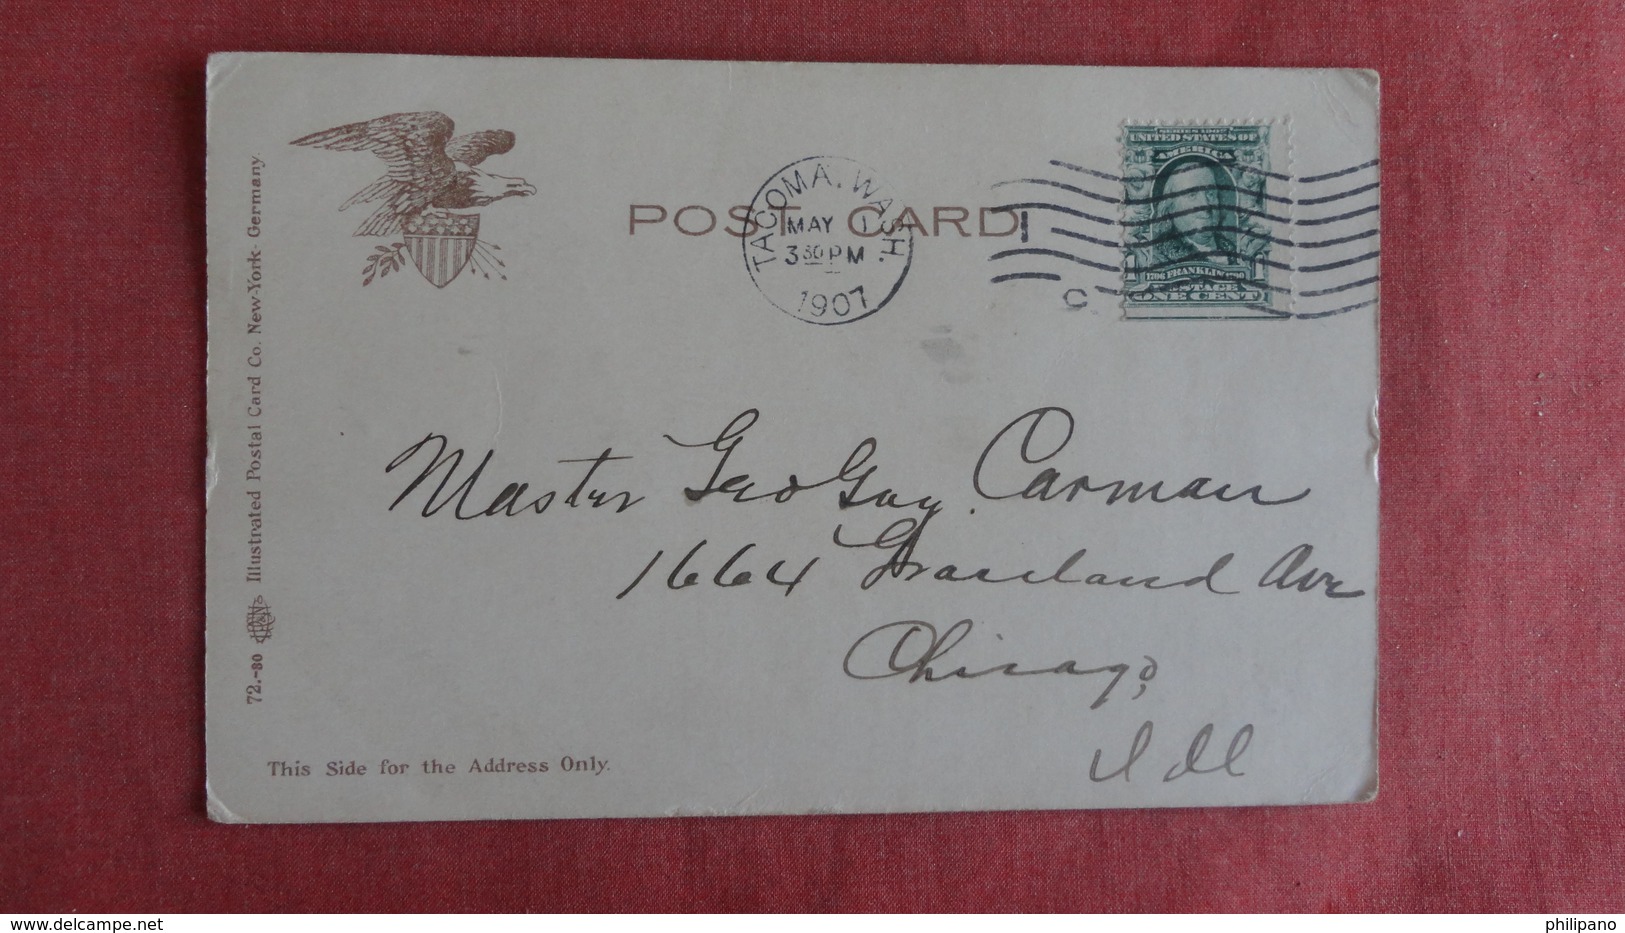 POST CARD
TACOMA, WASH.
MAY 1
3 30 PM
1907
C
SERIES 1902
UNITED STATES OF
AMERICA
1706 FRANKLIN 1790
1 1
POSTAGE
ONE CENT
Master Geo Guy Carman
1664 Graceland Ave
Chicago,
Ill
This Side for the Address Only.
72.-80 Illustrated Postal Card Co. New-York- Germany.
philipano